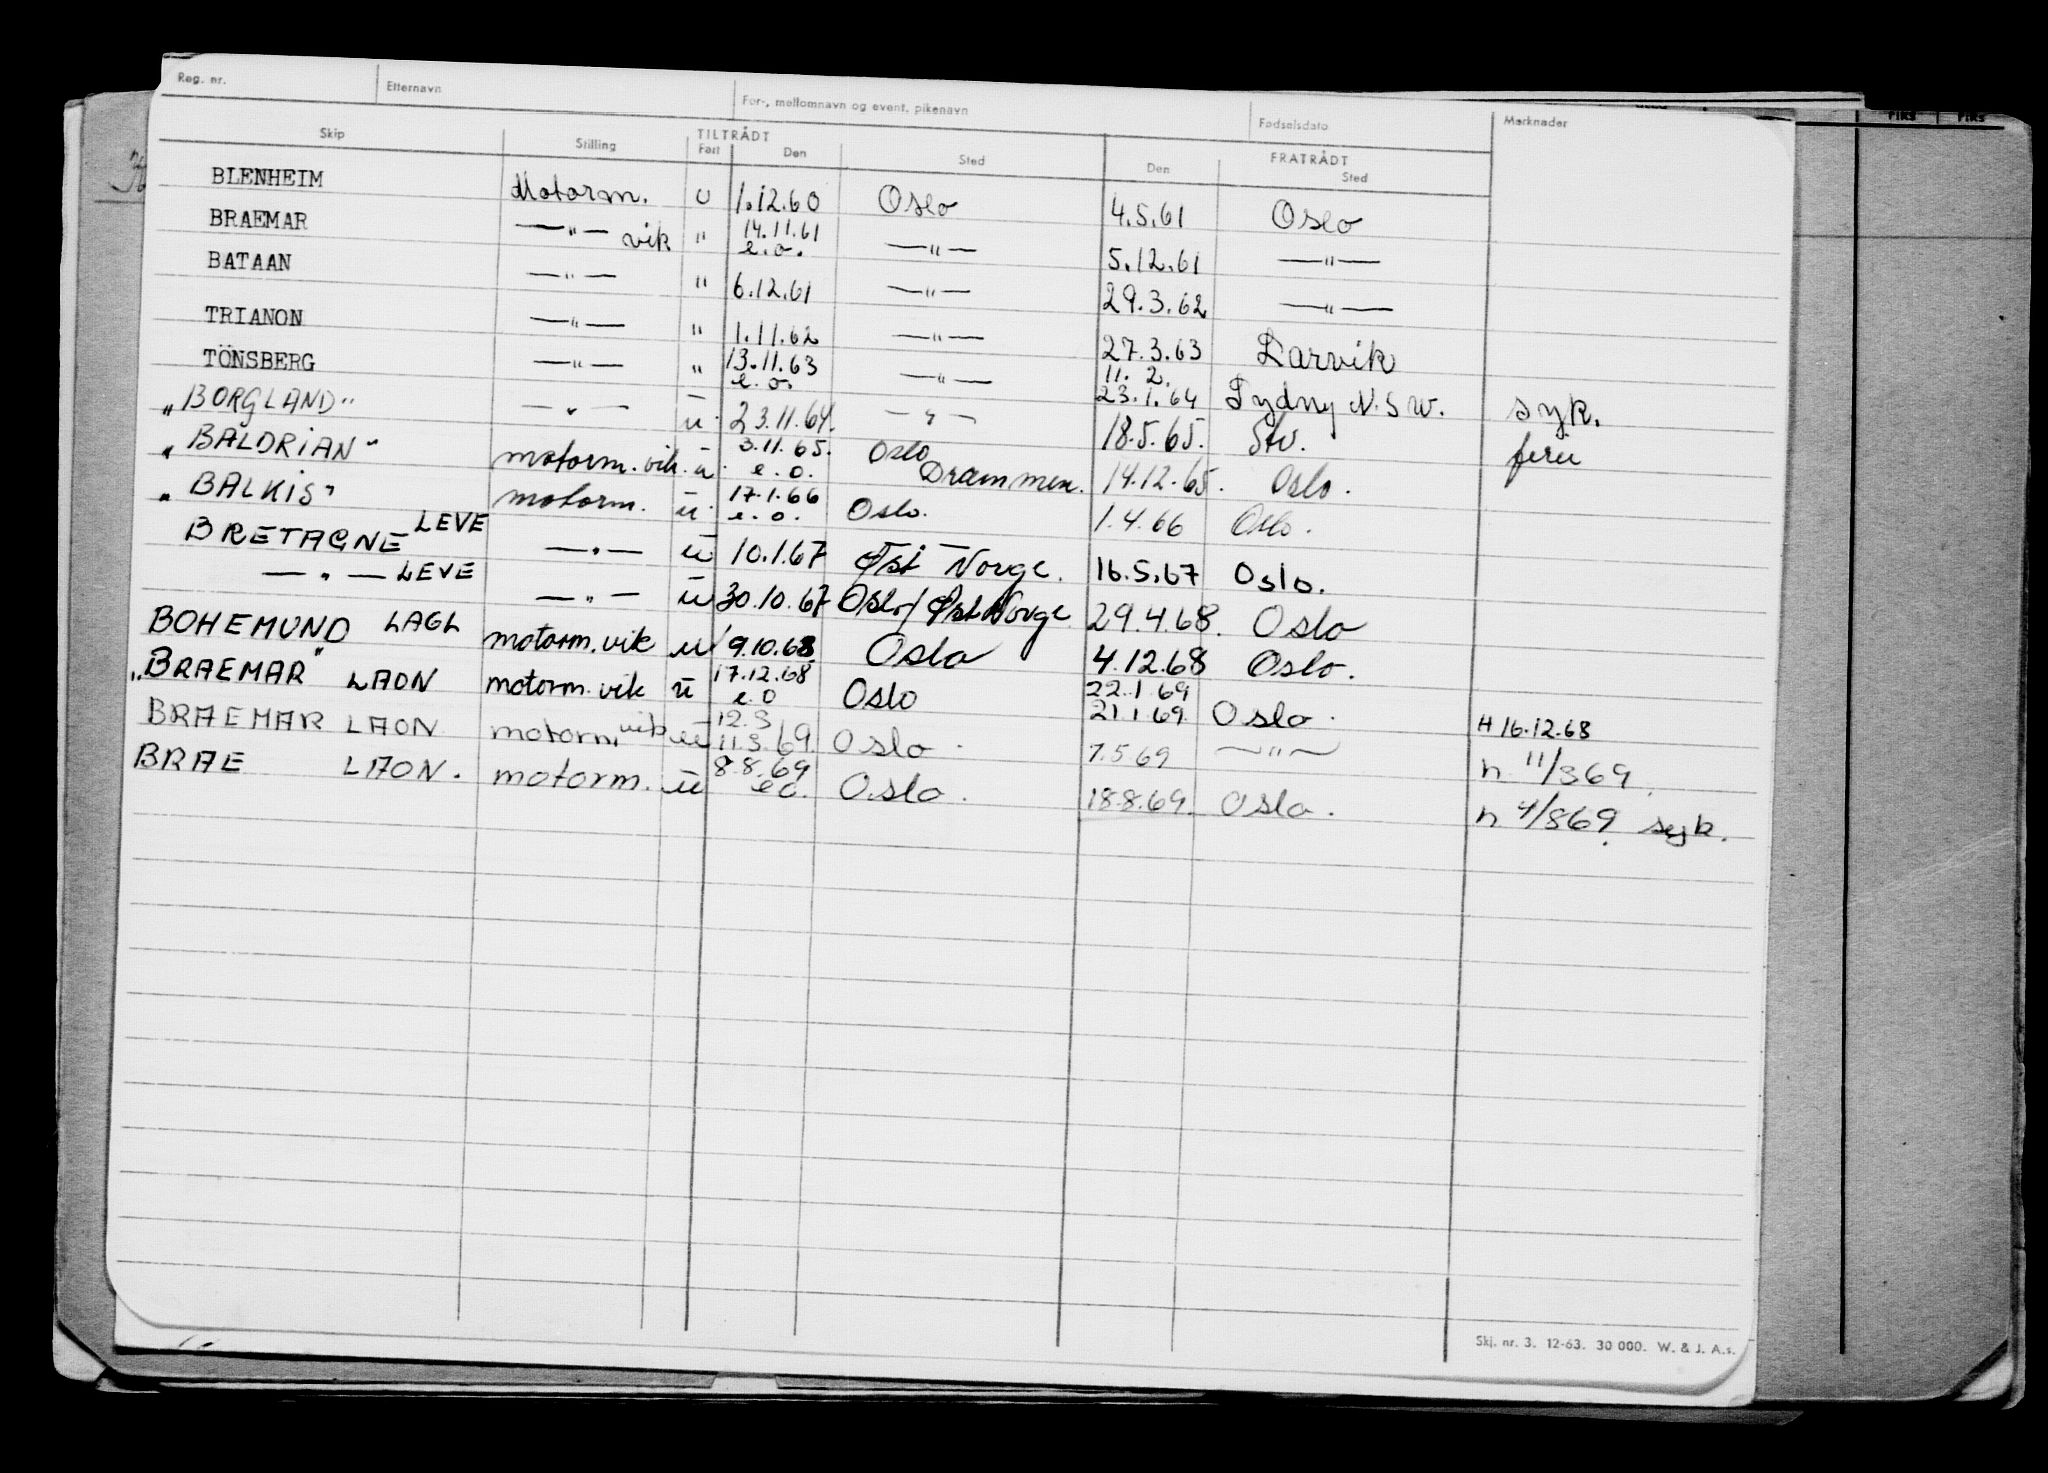 Reg. nr. Etternavn For-, mellomnavn og event. pikenavn Fødselsdato Merknader
TILTRÅDT FRATRÅDT
Skip Stilling Fart Den Sted Den Sted
BLENHEIM Motorm. U 1.12.60 Oslo 4.5.61 Oslo
BRAEMAR —"— vik " 14.11.61 e.o. —"— 5.12.61 —"—
BATAAN —"— " 6.12.61 —"— 29.3.62 —"—
TRIANON —"— " 1.11.62 —"— 27.3.63 Larvik
TÖNSBERG —"— " 13.11.63 e.o. —"— 11. 2. 23.1.64 Sydny N.S.W. syk.
"BORGLAND" —"— u 23.11.64. —"— 18.5.65. Stv. ferie
"BALDRIAN" motorm. vik. u. 3.11.65. e.o. Oslo Drammen. 14.12.65. Oslo.
"BALKIS" motorm. u. 17.1.66 e.o. Oslo. 1.4.66 Oslo.
BRETAGNE LEVE —"— u 10.1.67 Øst Norge. 16.5.67 Oslo.
—"— LEVE —"— u 30.10.67 Oslo/Øst Norge 29.4.68. Oslo
BOHEMUND LAGL motorm. vik u 9.10.68 Oslo 4.12.68 Oslo.
"BRAEMAR" LAON motorm. vik u 17.12.68 e.o Oslo 22.1.69 21.1.69. Oslo. H 16.12.68
BRAEMAR LAON motorm vik u 12.3 11.3.69. Oslo. 7.5.69 —"— h 11/369.
BRAE LAON. motorm. u 8.8.69 eo. Oslo. 18.8.69. Oslo. h 4/869. syk.
Skj. nr. 3. 12-63. 30 000. W. & J. A.s.